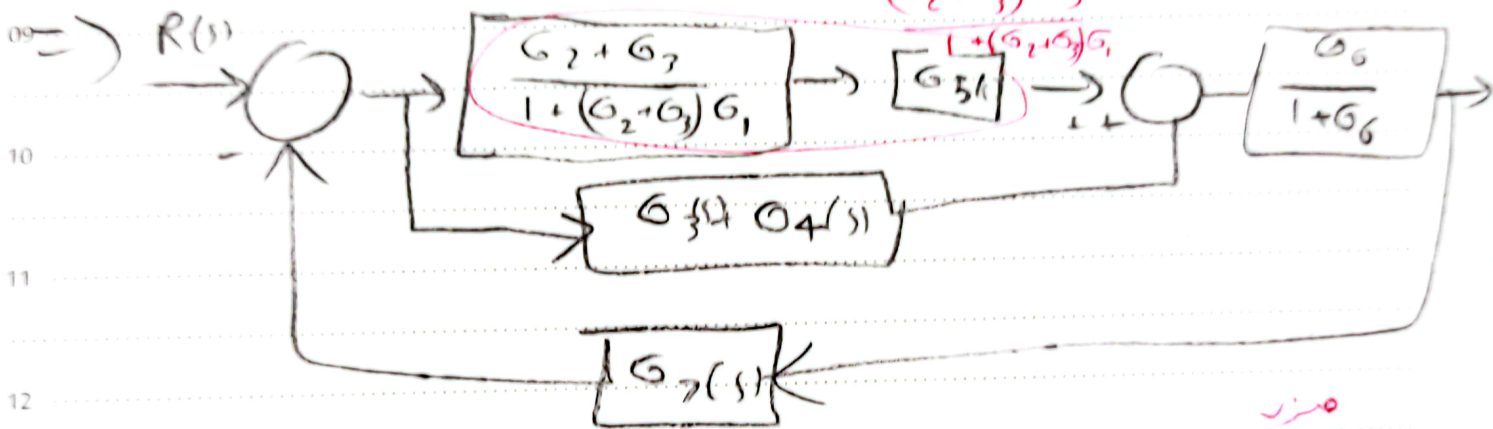 09 => R(s)
G2 + G3
1 + (G2+G3) G1
G5
1+(G2+G3)G1
+ +
G6
1+G6
10 -
G4(s)
11
G7(s)
12